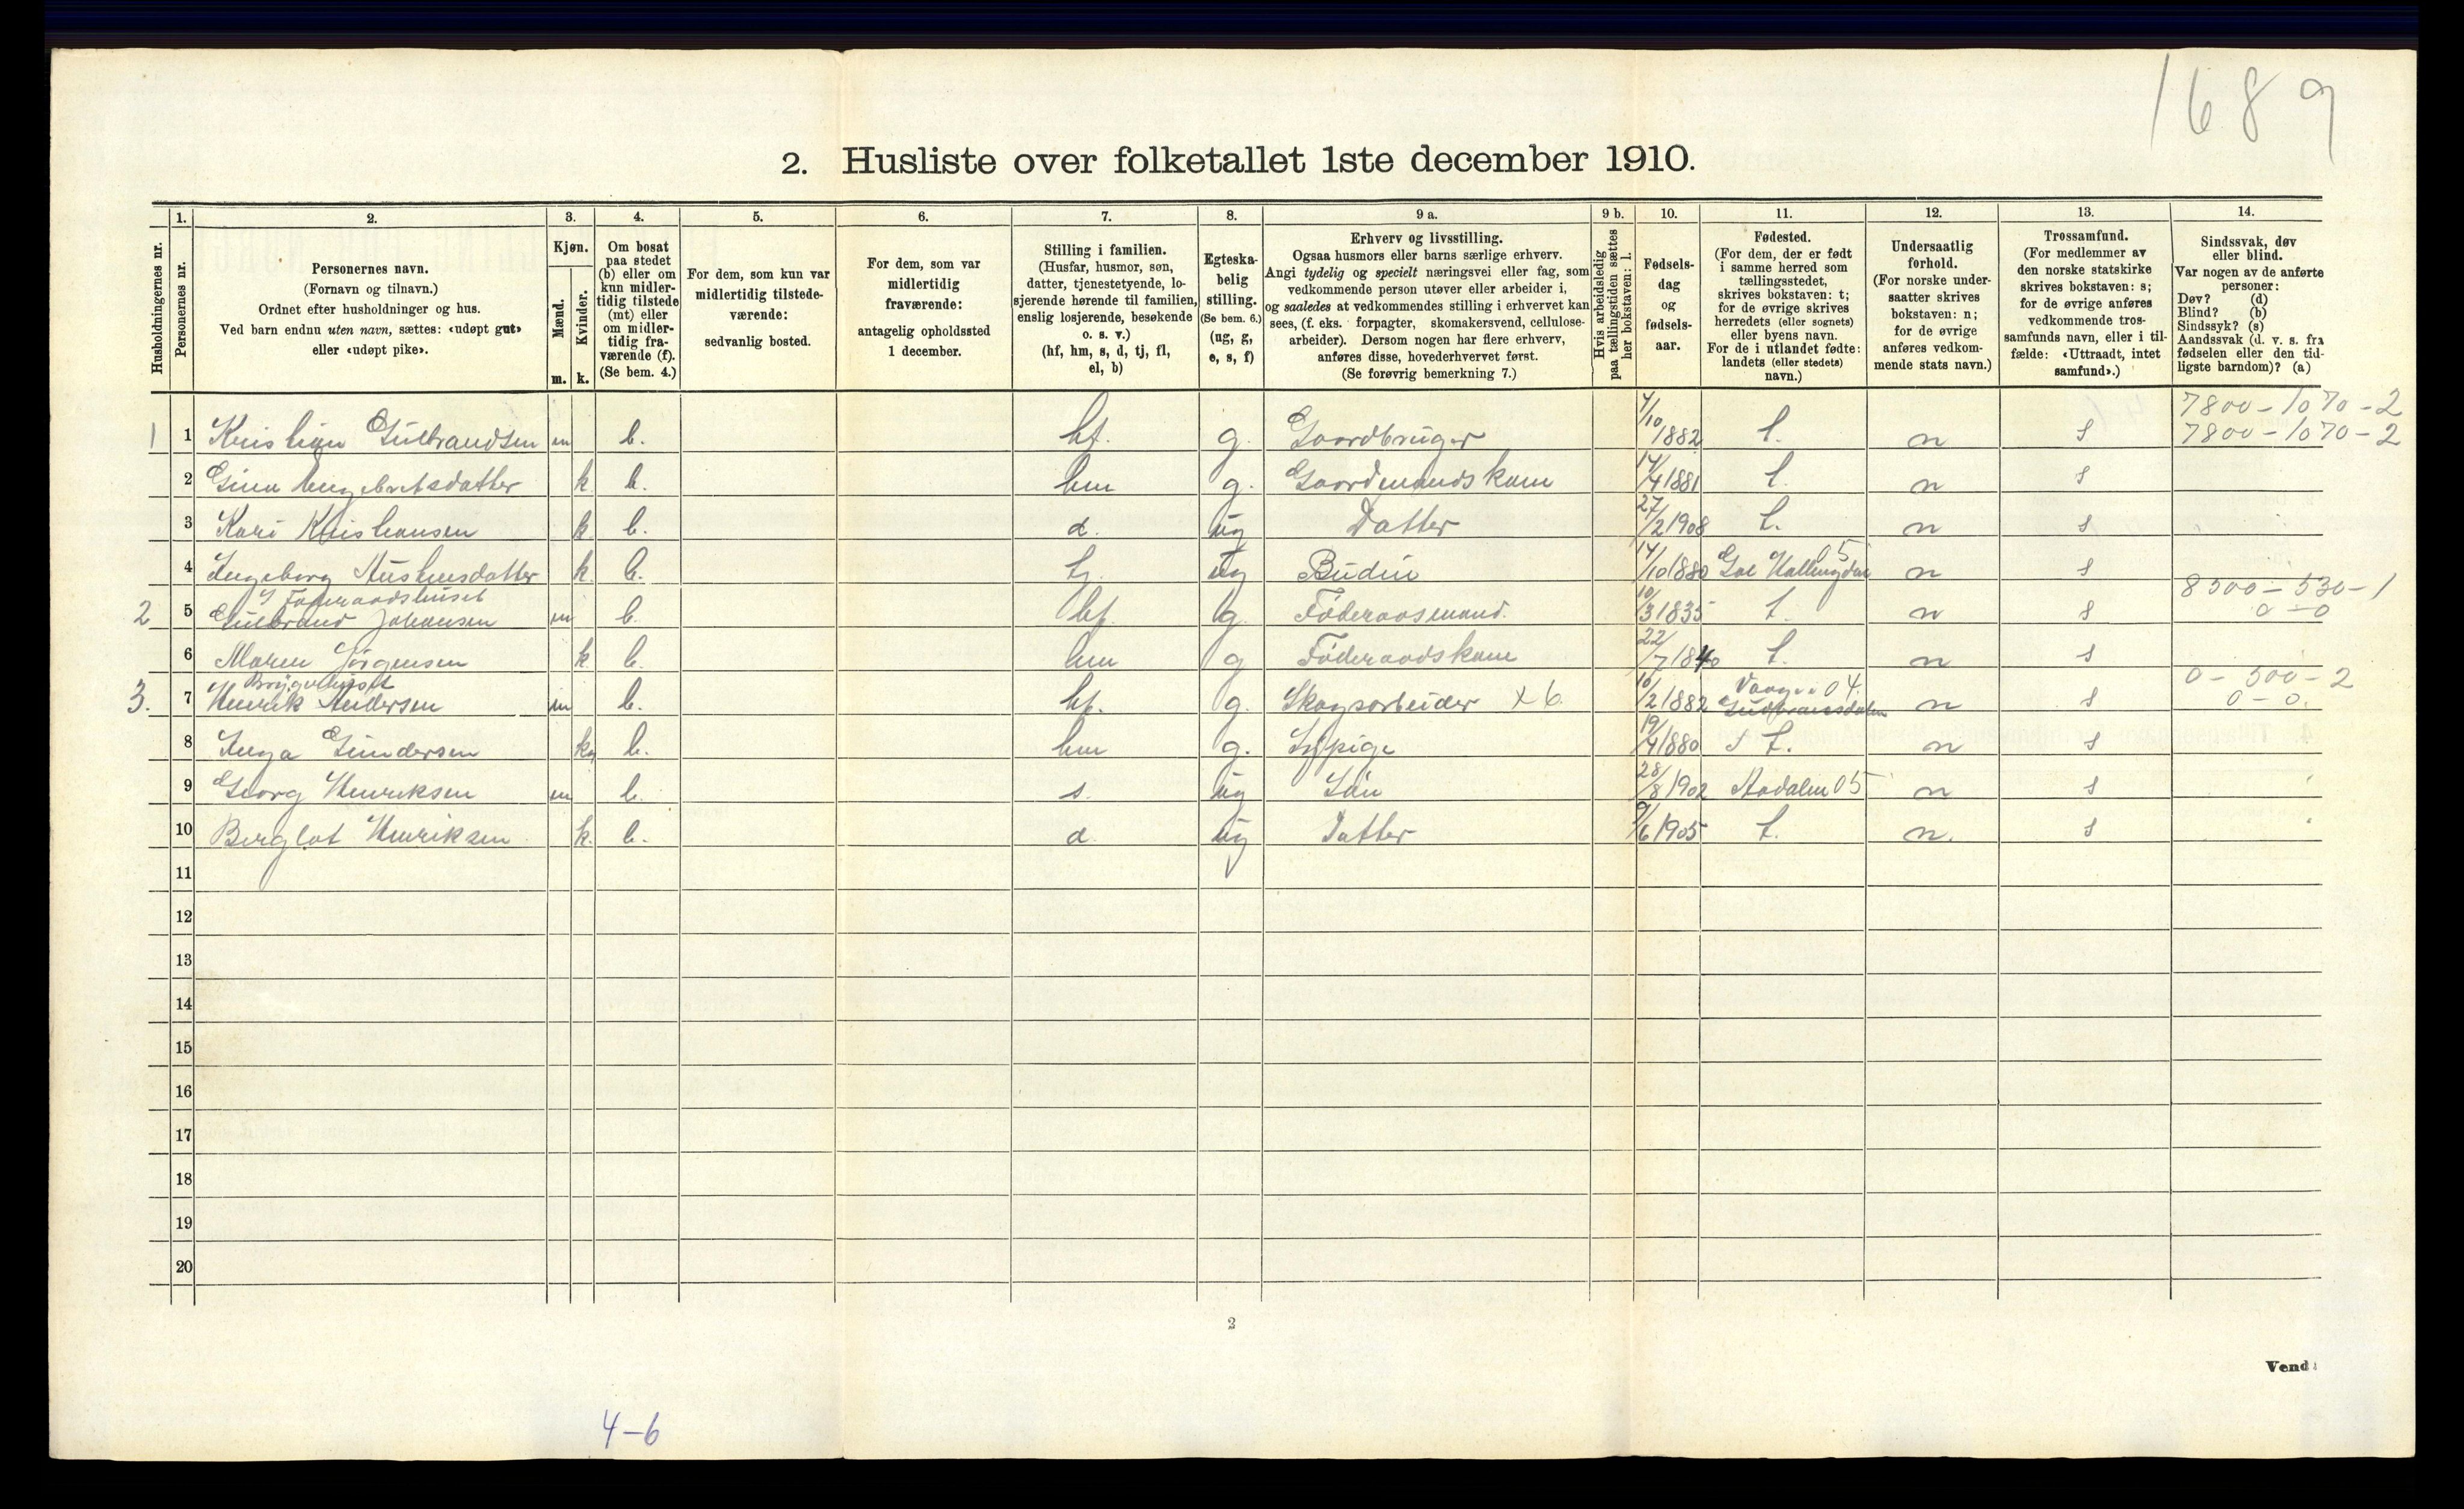 1689
2. Husliste over folketallet 1ste december 1910.
Husholdningernes nr.
1. Personernes nr.
2. Personernes navn. (Fornavn og tilnavn.) Ordnet efter husholdninger og hus. Ved barn endnu uten navn, sættes: «udøpt gut» eller «udøpt pike».
3. Kjøn. Mænd. m. Kvinder. k.
4. Om bosat paa stedet (b) eller om kun midlertidig tilstede (mt) eller om midlertidig fraværende (f). (Se bem. 4.)
5. For dem, som kun var midlertidig tilstedeværende: sedvanlig bosted.
6. For dem, som var midlertidig fraværende: antagelig opholdssted 1 december.
7. Stilling i familien. (Husfar, husmor, søn, datter, tjenestetyende, losjerende hørende til familien, enslig losjerende, besøkende o. s. v.) (hf, hm, s, d, tj, fl, el, b)
8. Egteskabelig stilling. (Se bem. 6.) (ug, g, e, s, f)
9 a. Erhverv og livsstilling. Ogsaa husmors eller barns særlige erhverv. Angi tydelig og specielt næringsvei eller fag, som vedkommende person utøver eller arbeider i, og saaledes at vedkommendes stilling i erhvervet kan sees, (f. eks. forpagter, skomakersvend, cellulosearbeider). Dersom nogen har flere erhverv, anføres disse, hovederhvervet først. (Se forøvrig bemerkning 7.)
9 b. Hvis arbeidsledig paa tællingstiden sættes her bokstaven: l.
10. Fødselsdag og fødselsaar.
11. Fødested. (For dem, der er født i samme herred som tællingsstedet, skrives bokstaven: t; for de øvrige skrives herredets (eller sognets) eller byens navn. For de i utlandet fødte: landets (eller stedets) navn.)
12. Undersaatlig forhold. (For norske undersaatter skrives bokstaven: n; for de øvrige anføres vedkommende stats navn.)
13. Trossamfund. (For medlemmer av den norske statskirke skrives bokstaven: s; for de øvrige anføres vedkommende trossamfunds navn, eller i tilfælde: «Uttraadt, intet samfund».)
14. Sindssvak, døv eller blind. Var nogen av de anførte personer: Døv? (d) Blind? (b) Sindssyk? (s) Aandssvak (d. v. s. fra fødselen eller den tidligste barndom)? (a)
7800-1070-2
1 1 Kristian Gulbrandsen m b. hf. g. Gaardbruger 4/10 1882 t. n s 7800-1070-2
2 Gina Engebretsdatter k b. hm g. Gaardmandskone 14/4 1881 t. n s
3 Kari Kristiansen k b. d. ug Datter 27/2 1908 t. n s
4 Ingeborg k b. tj. ug Budeie 14/10 1880 Gol Hallingdal 05 n s
I Føderaadshuset 8500-530-1
2 5 Gulbrand Johansen m b. hf. g. Føderaasmand. 10/3 1835 t. n s 0-0
6 Maren Jörgensen k b. hm g Føderaadskone 22/7 1840 t. n s
Bryggehuset 0-500-2
3. 7 Henrik Andersen m b. hf. g. Skogsarbeider x6 16/2 1882 Vaage 04 Gudbransdalen n s 0-0.
8 Inga Gundersen k b. hm g. Sypige 19/4 1880 t. n s
9 Georg Henriksen m b. s. ug Sön 28/8 1902 Aadalen 05 n s
10 Berglot Henriksen k. b. d. ug Datter 9/6 1905 t. n. s
11
12
13
14
15
16
17
18
19
20
2
Vend
4-6